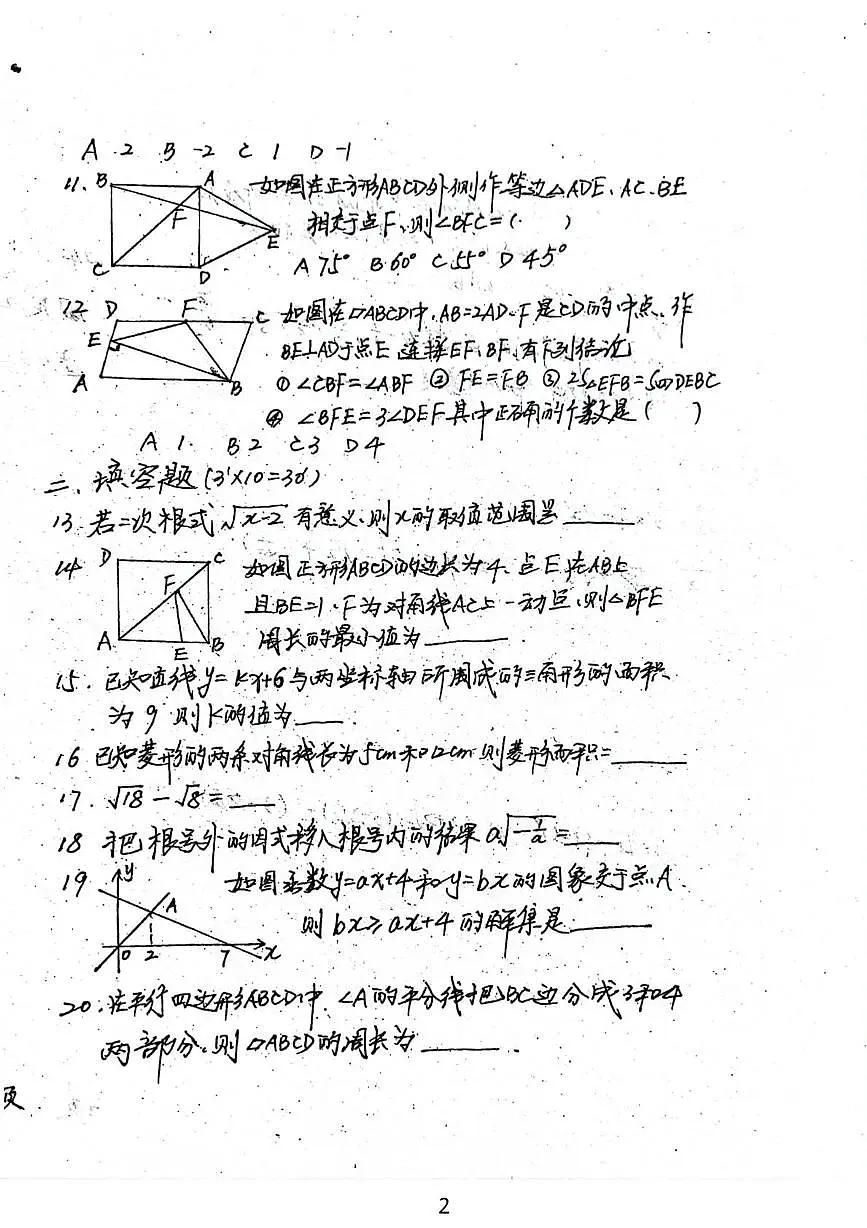 A 2 B -2 C 1 D -1
11. 如图在正方形ABCD外侧作等边△ADE、AC、BE
相交于点F,则∠BFC=( )
A 75° B 60° C 55° D 45°
B A F E C D
12 如图在▱ABCD中,AB=2AD、F是CD的中点、作
BE⊥AD于点E 连接EF、BF,有下列结论
① ∠CBF=∠ABF ② FE=FB ③ 2S△EFB=S四DEBC
④ ∠BFE=3∠DEF 其中正确的个数是( )
D F C E A B
A 1. B 2 C 3 D 4
二、填空题(3'×10=30')
13. 若二次根式√x-2 有意义,则x的取值范围是
14 如图正方形ABCD的边长为4、点E在AB上
且BE=1,F为对角线AC上一动点,则△BFE
周长的最小值为
D C F A E B
15. 已知直线y=kx+6与两坐标轴所围成的三角形的面积
为9 则k的值为
16 已知菱形的两条对角线长为5cm和12cm 则菱形面积=
17. √18 - √8 =
18 把根号外的因式移入根号内的结果 a√-1/a =
19 如图函数y=ax+4和y=bx的图象交于点A
则bx≥ax+4的解集是
y A 0 2 7 x
20. 在平行四边形ABCD中、∠A的平分线把BC边分成3和4
两部分,则▱ABCD的周长为
页
2